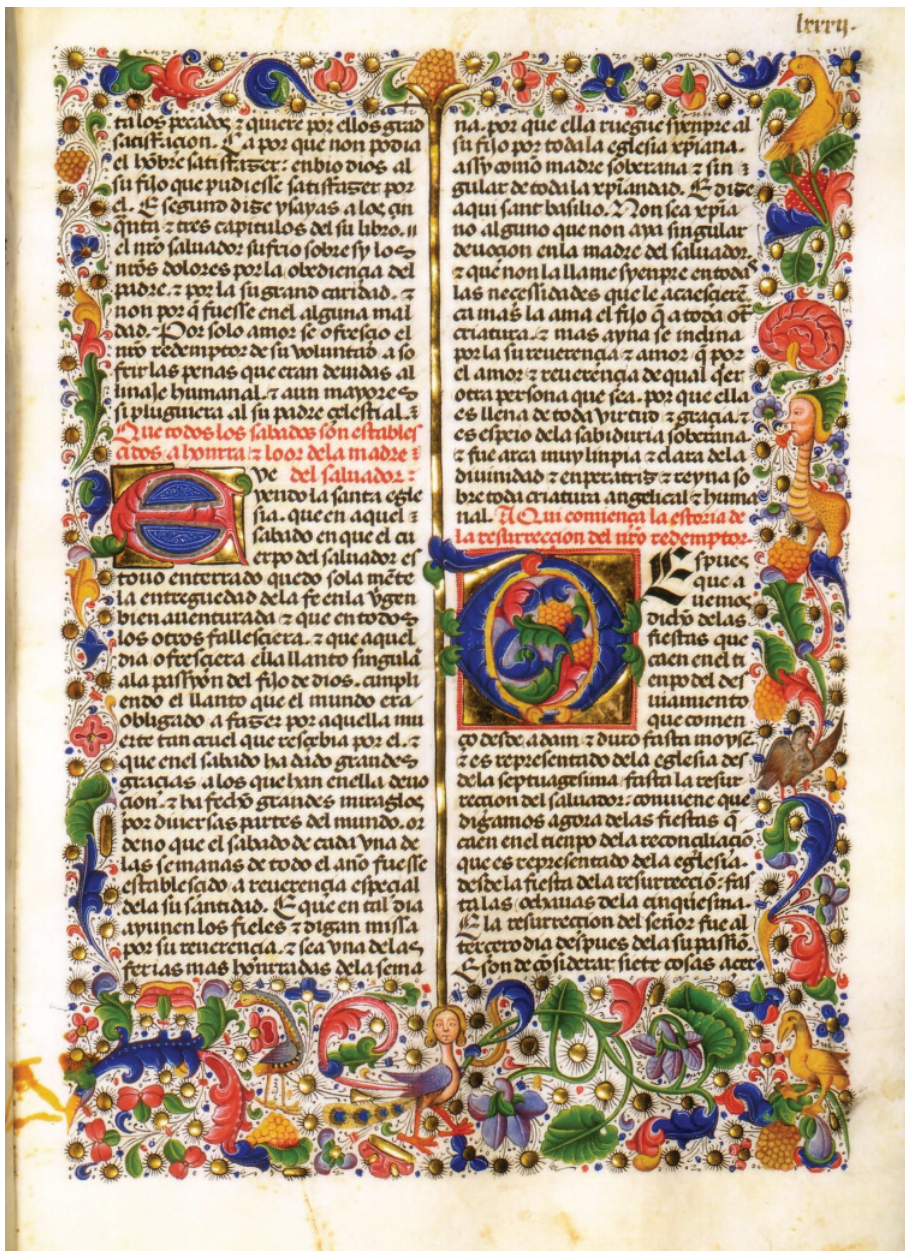 lxxxij.
ta los pecados ⁊ quiere por ellos grãd
satisfacion. Ca por que non podia
el hõbre satisfazer: enbio dios al
su fijo que pudiesse satisfazer por
el. E segund dize ysayas a los çin
qũta ⁊ tres capitulos del su libro.
el nr̃o saluador sufrio sobre sy los
nr̃os dolores por la obediençia del
padre. ⁊ por la su grand caridad. ⁊
non por q̃ fuesse en el alguna mal
dad. Por solo amor se ofresçio el
nr̃o redemptor de su voluntad a so
frir las penas que eran deuidas al
linaje humanal. ⁊ aun mayores
si pluguiera al su padre çelestial. ⁊
Que todos los sabados son estables
çidos a honrra ⁊ loor dela madre
del saluador:
E ye
yendo la santa egle
sia. que en aquel
sabado en que el cu
erpo del saluador es
touo enterrado quedo sola mẽte
la entreguedad dela fe en la ṽgen
bien auenturada ⁊ que en todos
los otros fallesçiera. ⁊ que aquel
dia ofresçiera ella llanto singular
ala passyon del fijo de dios. cunpli
endo el llanto que el mundo era
obligado a fazer por aquella mu
erte tan cruel que resçebia por el. ⁊
que enel sabado ha dado grandes
graçias a los que han enella deuo
çion. ⁊ ha fecho grandes miraglos
por diuersas partes del mundo. or
deno que el sabado de cada vna de
las semanas de todo el año fuesse
establesçido a reuerençia espeçial
dela su santidad. E que en tal dia
ayunen los fieles ⁊ digan missa
por su reuerençia. ⁊ sea vna delas
ferias mas honrradas dela sema
na. por que ella ruegue syenpre al
su fijo por toda la eglesia xp̃iana.
assy como madre soberana ⁊ sin
gular de toda la xp̃iandad. E dize
aqui sant basilio. Non sea xp̃ia
no alguno que non aya singular
deuoçion enla madre del saluador.
⁊ que non la llame syenpre en todas
las neçessidades que le acaesçierẽ.
ca mas la ama el fijo q̃ a toda otr̃
criatura. ⁊ mas ayna se inclina
por la su reuerençia ⁊ amor q̃ por
el amor ⁊ reuerençia de qual q̃er
otra persona que sea. por que ella
es llena de toda virtud ⁊ graçia. ⁊
es espejo dela sabiduria soberana.
⁊ fue arca muy linpia ⁊ clara dela
diuinidad ⁊ enperatriz ⁊ reyna so
bre toda criatura angelical ⁊ huma
nal. Aqui comiença la estoria de
la resurreccion del nr̃o redemptor.
D Espues
que a
uemos
dicho delas
fiestas que
caen en el ti
enpo del des
uiamiento
que comen
ço desde adam. ⁊ duro fasta moysẽ
⁊ es representado dela eglesia des
dela septuagesima. fasta la resur
reccion del saluador: conuiene que
digamos agora delas fiestas q̃
caen en el tienpo dela reconçiliaçiõ
que es representado dela eglesia.
desde la fiesta dela resurrecciõ: fas
ta las ochauas dela cinquesma.
E la resurreccion del señor fue al
terçero dia despues dela su passiõ.
E son de cõsiderar siete cosas açer